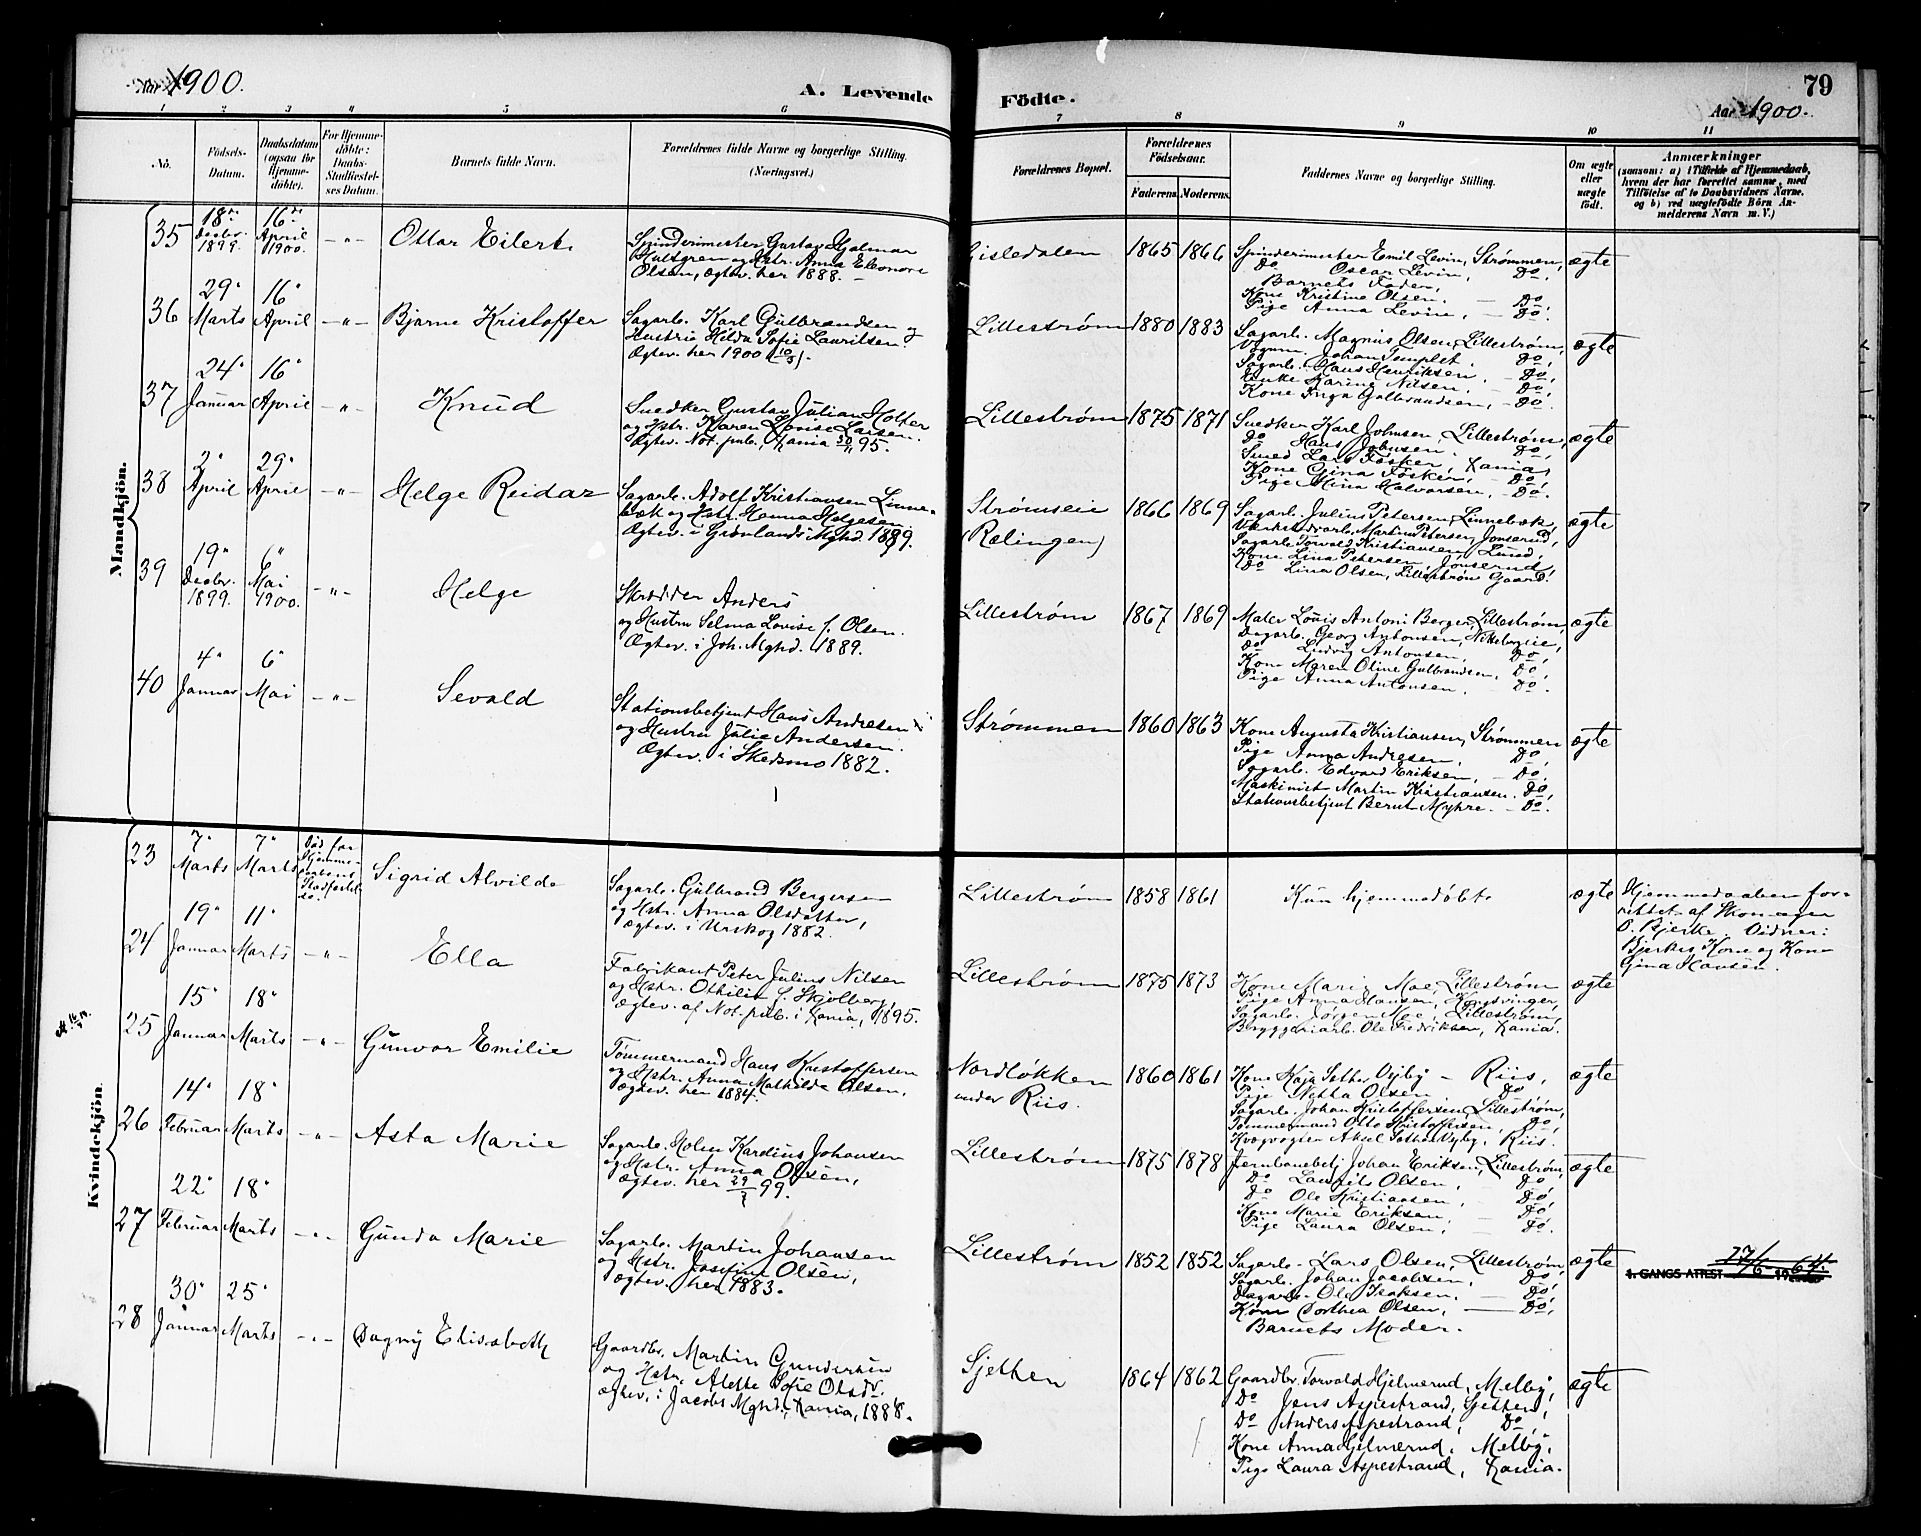 Aar 1900.
A. Levende
Födte.
79
Aar 1900.
1 2 3 4 5 6 7 8 9 10 11
No.
Födsels-
Datum.
Daabsdatum
(ogsaa for
Hjemme-
döbte).
For Hjemme-
döbte:
Daabs-
Stadfæstel-
ses Datum.
Barnets fulde Navn.
Forældrenes fulde Navne og borgerlige Stilling.
(Næringsvei.)
Forældrenes Bopæl.
Forældrenes
Födselsaar.
Faderens.
Moderens.
Faddernes Navne og borgerlige Stilling.
Om ægte
eller
uægte
födt.
Anmærkninger
(saasom: a) i Tilfælde af Hjemmedaab,
hvem der har forrettet samme, med
Tilföielse af to Daabsvidners Navne,
og b) ved uægtefödte Börn An-
melderens Navn m. V.)
Mandkjön.
35
18de
Decbr.
1899.
16de
April
1900.
-"-
Ottar Eilert.
Spinderimester Gustav Hjalmar
Hultgren og Hstr. Anna Eleonore
Olsen, Ægtev. her 1888.
Sisledalen
1865
1866
Spinderimester Emil Levin, Strømmen,
Do Oscar Levin, Do,
Barnets Fader,
Kone Kristine Olsen. - Do,
Pige Anna Levin, - Do.
ægte
36
29"
Marts
16"
April
-"-
Bjarne Kristoffer
Sagarb. Karl Gulbrandsen og
Hustru Hilda Sofie Lauritsen
Ægtev. her 1900
Lillestrøm
1880
1883
Sagarb. Magnus Olsen, Lillestrøm,
Vognm. Johan Templet. Do,
Sagarb. Hans Henriksen. - Do,
Enke Karine Nilsen. Do,
Kone Inga Gulbrandsen, - Do.
ægte
37
24"
Januar
16"
April
-"-
Knud
Snedker Gustav Julian Holter
og Hstr. Karen Lovise Larsen.
Ægtev. Not. pub. Kania 30/11 95.
Lillestrøm
1875
1871
Snedker Karl Johnsen, Lillestrøm,
Do Hans Johnsen. Do,
Smed Lars Fosker, Kania,
Kone Gina Fosker, - Do,
Pige Mina Halvorsen, - Do.
ægte
38
2"
April
29"
April
-"-
Helge Reidar
Sagarb. Adolf Kristiansen Linne-
bæk og Hstr. Hanna Helgesen.
Ægtev. i Grønlands Mghd. 1889.
Strømseie
(Rælingen)
1866
1869
Sagarb. Julius Petersen, Linnebæk,
Værkstedarb. Martin Petersen, Jonserud,
Sagarb. Torvald Kristiansen, Lund,
Kone Lina Petersen, Jonserud,
Do Lina Olsen, Lillestrøm Gaard.
ægte
39
19"
Decbr.
1899.
6"
Mai
1900.
-"-
Helge
Skrædder Anders
og Hustru Selma Lovise f. Olsen.
Ægtev. i Joh. Mghd. 1889.
Lillestrøm
1867
1869
Maler Louis Antoni Berger, Lillestrøm,
Dagarb. Georg Antonsen, Nittebergeie,
Do Ludvig Antonsen, Do,
Kone Maren Oline Gulbrandsen, Do,
Pige Anna Antonsen. - Do.
ægte
40
4"
Januar
6"
Mai
-"-
Sevald
Stationsbetjent Hans Andresen
og Hustru Julie Andersen.
Ægtev. i Skedsmo 1882.
Strømmen
1860
1863
Kone Augusta Kristiansen, Strømmen
Pige Anna Andresen, Do,
Sagarb. Edvard Eriksen, - Do,
Maskinist Martin Kristiansen. Do,
Stationsbetjent Bernt Myhre. - Do.
ægte
Kvindekjön.
23
7"
Marts
7"
Marts
Død før
Hjemme-
daabens
Stadfæstel-
se.
Sigrid Alvilde
Sagarb. Gulbrand Bergersen
og Hstr. Anna Olsdatter,
Ægtev. i Urskog 1882.
Lillestrøm
1858
1861
Kun hjemmedøbt.
ægte
Hjemmedaaben for-
rettet af Skomager
O. Bjerke. Vidner:
Bjerkes Kone og Kone
Gina Hansen.
24
19"
Januar
11"
Marts
-"-
Ella
Fabrikant Peter Julius Nilsen
og Hstr. Othilie f. Skjolberg,
Ægtev. af Not. pub. i Kania, 1895.
Lillestrøm
1875
1873
Kone Marie Moe, Lillestrøm
Pige Anna Hansen, Kongsvinger,
Sagarb. Jørgen Moe, Lillestrøm,
Bryggeriarb. Ole Fredriksen, Kania.
ægte
25
15"
Januar
18"
Marts
-"-
Gunvor Emilie
Tømmermand Hans Kristoffersen
og Hstr. Anna Mathilde Olsen,
Ægtev. her 1884.
Nordløkken
under Riis.
1860
1861
Kone Kaja Sether Vejby - Riis,
Pige Netta Olsen Do
Sagarb. Johan Kristoffersen, Lillestrøm,
Tømmermand Otto Kristoffersen, Do,
Kvægvogter Aksel Sether Vejby, Riis.
ægte
26
14"
Februar
18"
Marts
-"-
Asta Marie
Sagarb. Holm Kardius Johansen
og Hstr. Anna Olsen,
Ægtev. her 29/7 99.
Lillestrøm
1875
1878
Jernbanebetj. Johan Eriksen, Lillestrøm,
Do Laurits Olsen, - Do
Do Ole Kristiansen, - Do,
Kone Marie Eriksen - Do,
Pige Laura Olsen, - Do.
ægte
27
22"
Februar
18"
Marts
-"-
Gunda Marie
Sagarb. Martin Johansen
og Hstr. Josefine Olsen,
Ægtev. her 1883.
Lillestrøm
1852
1852
Sagarb. Lars Olsen, Lillestrøm,
Sagarb. Johan Jacobsen, Do,
Dagarb. Ole Isaksen, - Do,
Kone Dorthea Olsen, - Do,
Barnets Moder.
ægte
1. GANGS ATTEST 17/6 1964.
28
30"
Januar
25"
Marts
-"-
Dagny Elisabeth
Gaardbr. Martin Gundersen
og Hstr. Alette Sofie Olsdtr.
Ægtev. i Jacobs Mghd., Kania, 1888.
Sjetten
1864
1862
Gaardbr. Torvald Hjelmerud, Melby,
Do Jens Aspestrand, Sjetten,
Do Anders Aspestrand, Do,
Kone Anna Hjelmerud, Melby,
Pige Laura Aspestrand, Kania.
ægte